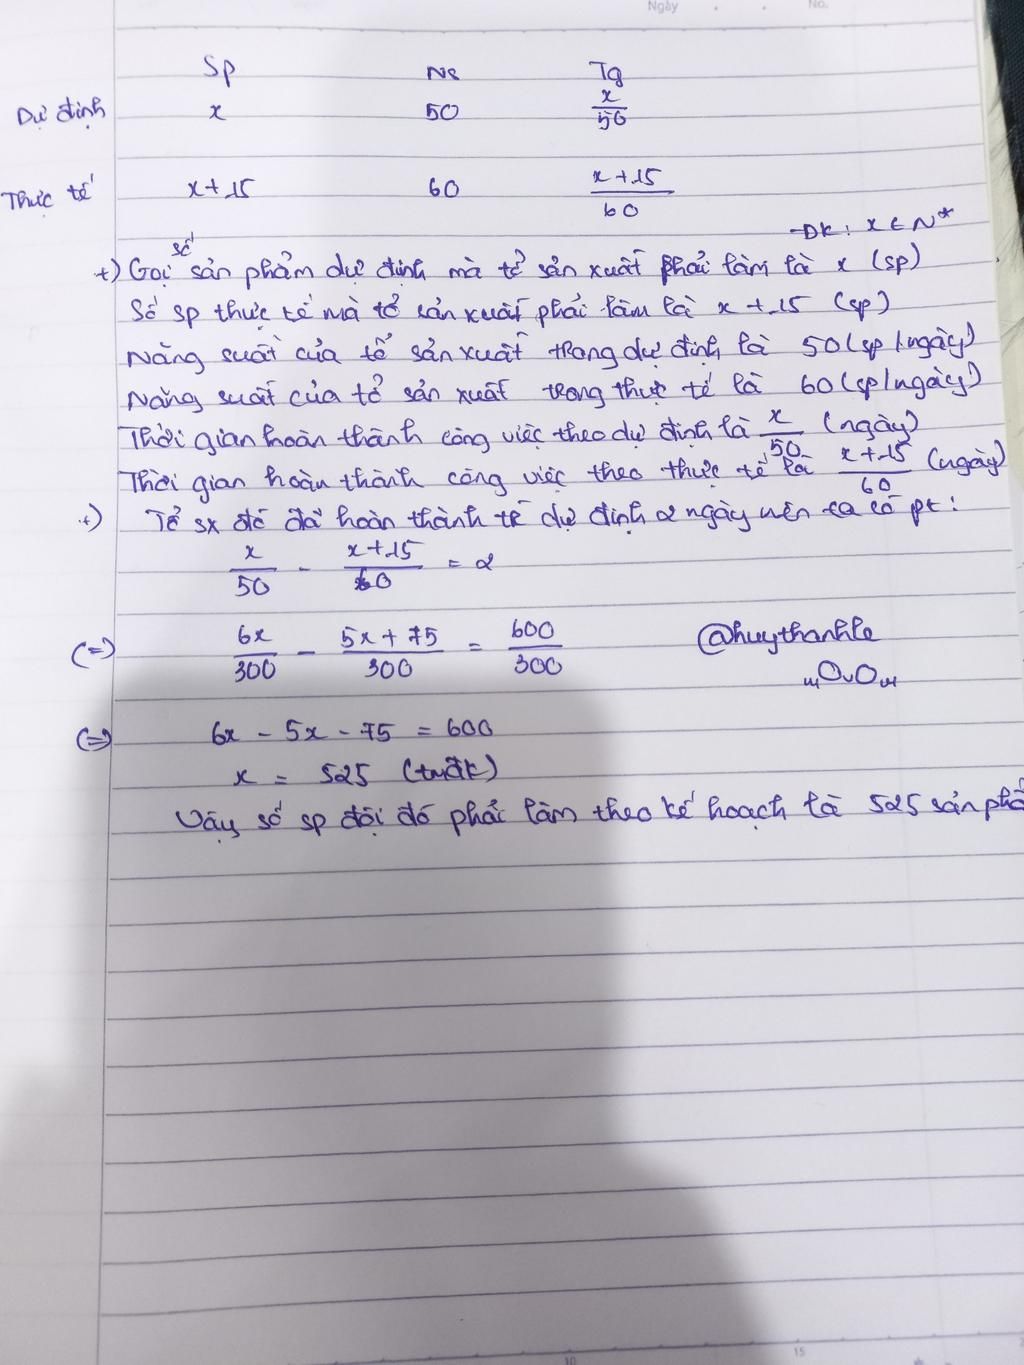 Ngày No.
Sp Ns Tg
Dự định x 50 x/50
Thực tế x+15 60 x+15/60
ĐK: x ∈ N*
+) Gọi số sản phẩm dự định mà tổ sản xuất phải làm là x (sp)
Số sp thực tế mà tổ sản xuất phải làm là x + 15 (sp)
Năng suất của tổ sản xuất trong dự định là 50 (sp/ngày)
Năng suất của tổ sản xuất trong thực tế là 60 (sp/ngày)
Thời gian hoàn thành công việc theo dự định là x/50 (ngày)
Thời gian hoàn thành công việc theo thực tế là x+15/60 (ngày)
+) Tổ sx đó đã hoàn thành dự định 2 ngày nên ta có pt:
x/50 - x+15/60 = 2
(=) 6x/300 - 5x+75/300 = 600/300
@huythanhle
(=) 6x - 5x - 75 = 600
x = 525 (tmđk)
Vậy số sp đội đó phải làm theo kế hoạch là 525 sản
10 15